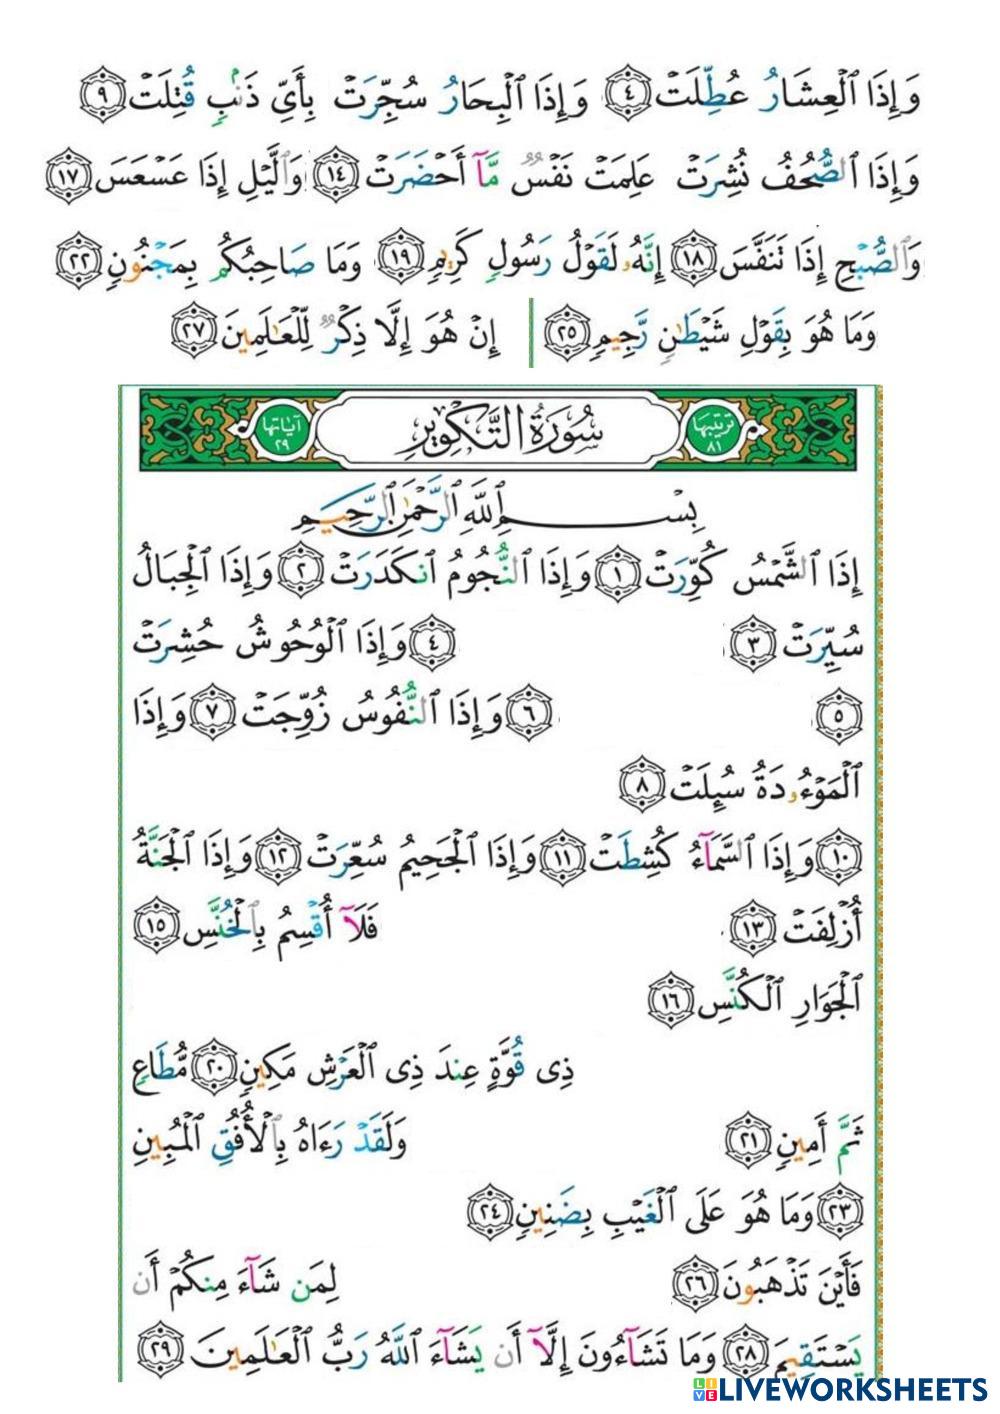 وَإِذَا ٱلْعِشَارُ عُطِّلَتْ ٤ وَإِذَا ٱلْبِحَارُ سُجِّرَتْ بِأَىِّ ذَنۢبٍ قُتِلَتْ ٩
وَإِذَا ٱلصُّحُفُ نُشِرَتْ عَلِمَتْ نَفْسٌ مَّآ أَحْضَرَتْ ١٤ وَٱلَّيْلِ إِذَا عَسْعَسَ ١٧
وَٱلصُّبْحِ إِذَا تَنَفَّسَ ١٨ إِنَّهُۥ لَقَوْلُ رَسُولٍ كَرِيمٍ ١٩ وَمَا صَاحِبُكُم بِمَجْنُونٍ ٢٢
وَمَا هُوَ بِقَوْلِ شَيْطَٰنٍ رَّجِيمٍ ٢٥ إِنْ هُوَ إِلَّا ذِكْرٌ لِّلْعَٰلَمِينَ ٢٧
ترتيبها ٨١ سُورَةُ التَّكْوِيرِ آياتها ٢٩
بِسْمِ ٱللَّهِ ٱلرَّحْمَٰنِ ٱلرَّحِيمِ
إِذَا ٱلشَّمْسُ كُوِّرَتْ ١ وَإِذَا ٱلنُّجُومُ ٱنكَدَرَتْ ٢ وَإِذَا ٱلْجِبَالُ
سُيِّرَتْ ٣ ٤ وَإِذَا ٱلْوُحُوشُ حُشِرَتْ
٥ ٦ وَإِذَا ٱلنُّفُوسُ زُوِّجَتْ ٧ وَإِذَا
ٱلْمَوْءُۥدَةُ سُئِلَتْ ٨
١٠ وَإِذَا ٱلسَّمَآءُ كُشِطَتْ ١١ وَإِذَا ٱلْجَحِيمُ سُعِّرَتْ ١٢ وَإِذَا ٱلْجَنَّةُ
أُزْلِفَتْ ١٣ فَلَآ أُقْسِمُ بِٱلْخُنَّسِ ١٥
ٱلْجَوَارِ ٱلْكُنَّسِ ١٦
ذِى قُوَّةٍ عِندَ ذِى ٱلْعَرْشِ مَكِينٍ ٢٠ مُّطَاعٍ
ثَمَّ أَمِينٍ ٢١ وَلَقَدْ رَءَاهُ بِٱلْأُفُقِ ٱلْمُبِينِ
٢٣ وَمَا هُوَ عَلَى ٱلْغَيْبِ بِضَنِينٍ ٢٤
فَأَيْنَ تَذْهَبُونَ ٢٦ لِمَن شَآءَ مِنكُمْ أَن
يَسْتَقِيمَ ٢٨ وَمَا تَشَآءُونَ إِلَّآ أَن يَشَآءَ ٱللَّهُ رَبُّ ٱلْعَٰلَمِينَ ٢٩
LIVE LIVEWORKSHEETS